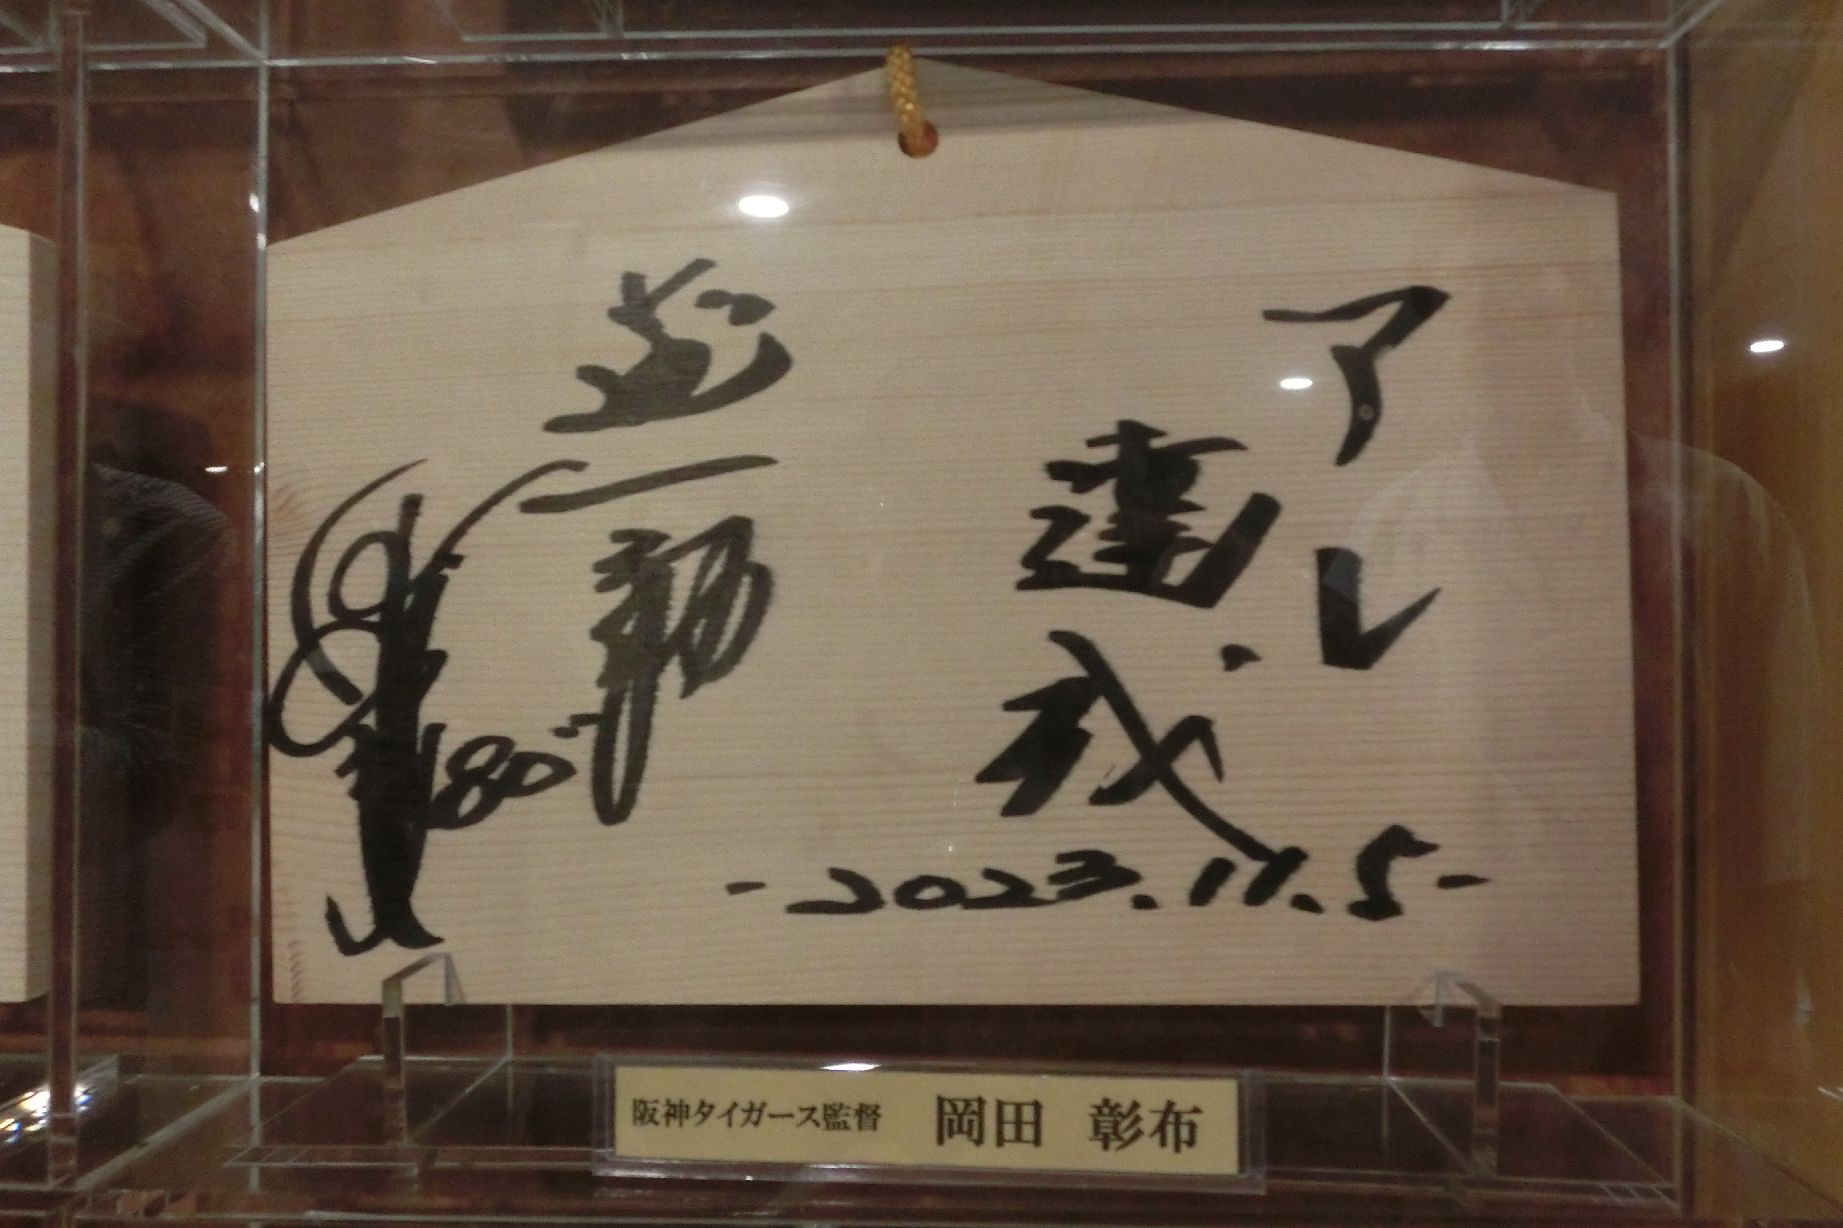 アレ
達成
道一筋
80
-2023.11.5-
阪神タイガース監督 岡田 彰布